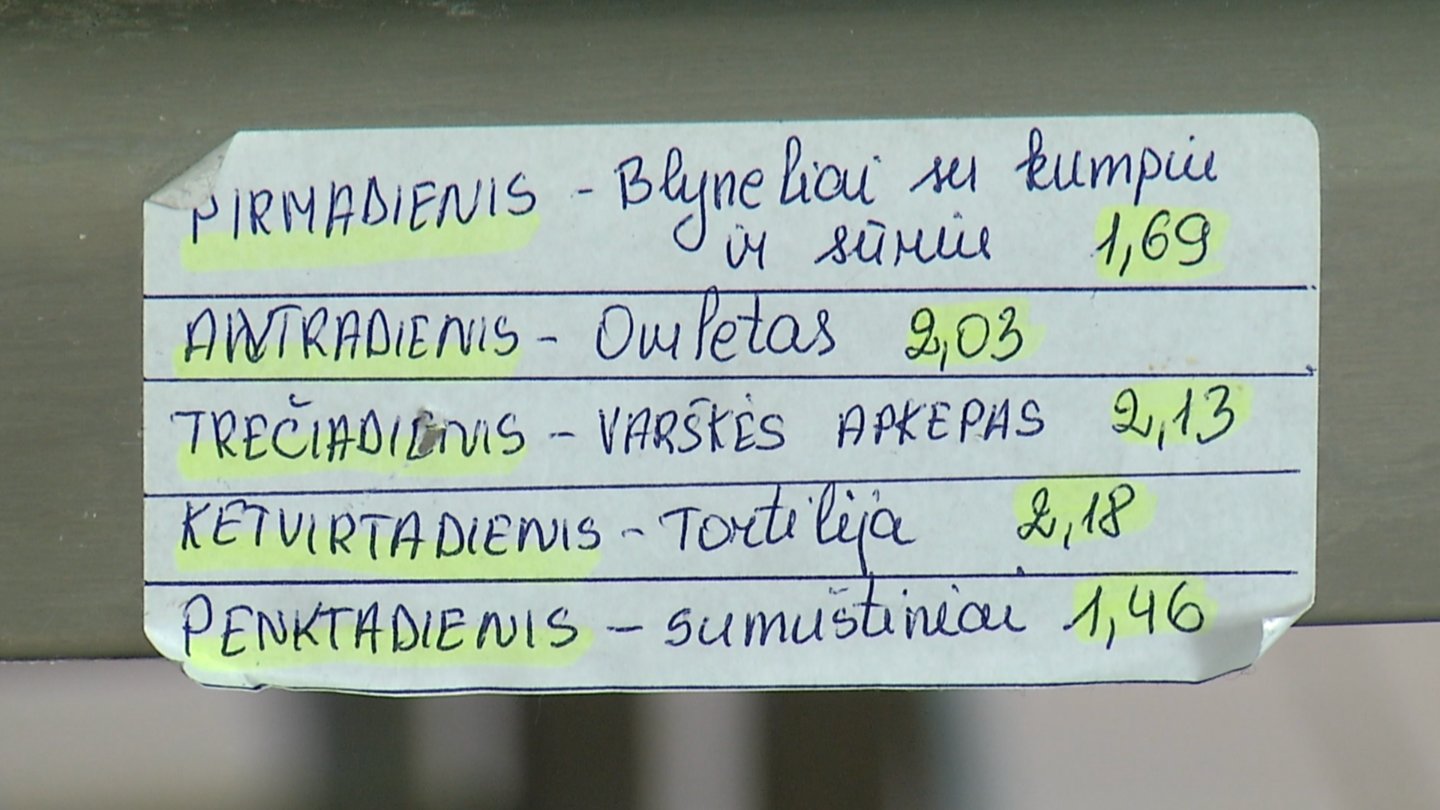 PIRMADIENIS - Blyneliai su kumpiu
ir sūriu 1,69
ANTRADIENIS - Omletas 2,03
TREČIADIENIS - VARŠKĖS APKEPAS 2,13
KETVIRTADIENIS - Tortilija 2,18
PENKTADIENIS - sumuštiniai 1,46